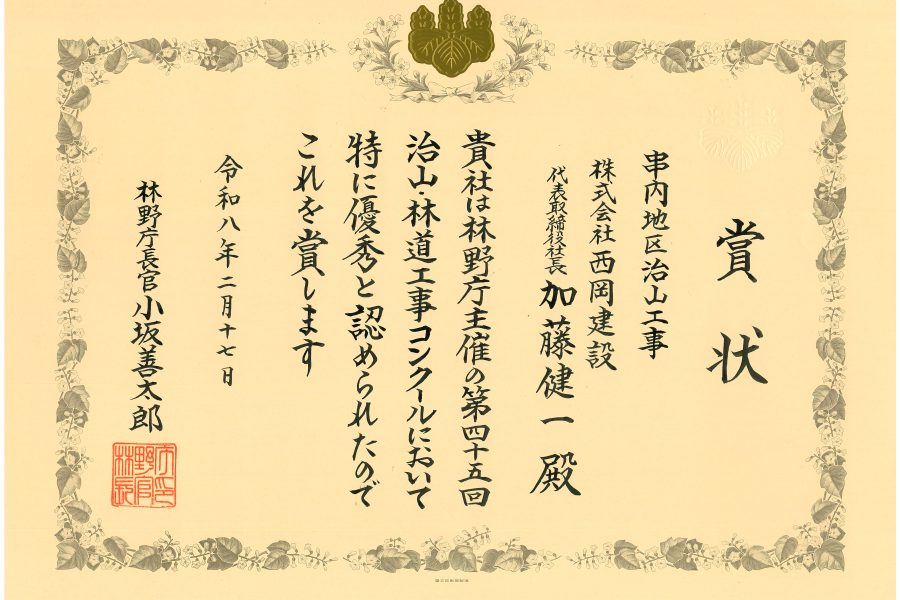 賞状
串内地区治山工事
株式会社西岡建設
代表取締役社長 加藤健一 殿
貴社は林野庁主催の第四十五回
治山・林道工事コンクールにおいて
特に優秀と認められたので
これを賞します
令和八年二月十七日
林野庁長官 小坂善太郎